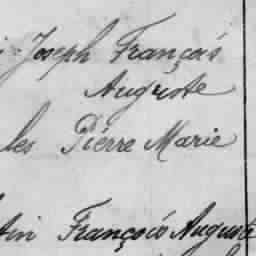 Joseph François
Auguste
les Pierre Marie
tin François Auguste